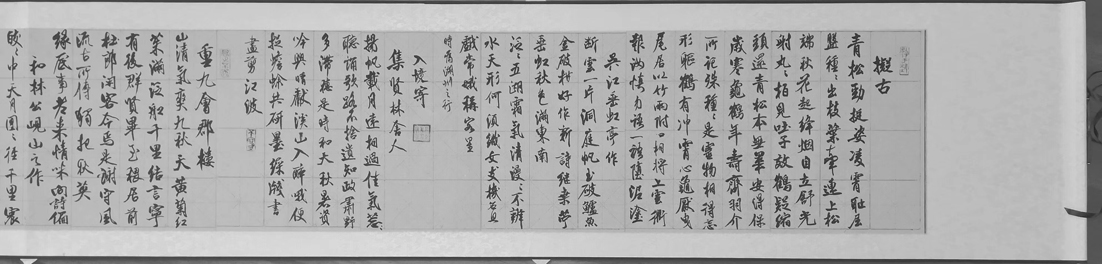 擬古
青松勁挺姿凌霄恥屈
盤種種出枝葉牽連上松
端秋花起絳烟自立舒光
射丸丸栢見吐子效鶴疑縮
頸還青松本無華安得保
歲寒龜鶴年壽齊羽介
所託殊種種是靈物相得忘
形軀鶴有冲霄心龜厭曳
尾居以竹兩附口相將上雲衢
報汝慎勿語一語墮泥塗
吳江垂虹亭作
斷雲一片洞庭帆玉破鱸魚
金破柑好作新詩繼桑苧
垂虹秋色滿東南
泛泛五湖霜氣清漫漫不辨
水天形何須織女支機石且
戲常娥稱客星
時爲湖州之行
入境寄
集賢林舍人
揚帆載月遠相過佳氣蔥
聽誦歌路不捨遺知政肅野
多滯穗是時和天秋暑資
吟興晴獻溪山入醉哦便
捉蟾蜍共研墨綵牋書
盡剪江波
重九會郡樓
山清氣爽九秋天黃菊紅
茱滿泛船千里結言寧
有後群賢畢至猥居前
杜郎閑客今焉是謝守風
流古所傳獨把秋英
緣底事老來情味向詩偏
和林公峴山之作
皎皎中天月團團徑千里震